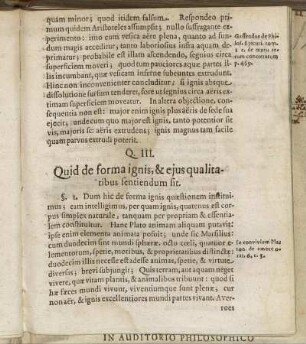 quam minor; quod itidem falsum. Respondeo pri-
mum quidem Aristoteles assumpsit; nullo suffragante ex-
perimento: imo cum vesica aëre plena, quanto ad fun-
dum magis acceditur, tanto laboriosius infra aquam de-
primatur; probabile est illam ascendendo, segnius circa
superficiem moveri; quod tum pauciores aquæ partes il-
li incumbant, quæ vesicam inferne subeuntes extrudunt.
Hinc non inconvenienter concluditur, si ignis absque
dissolutione sursum tenderet, fore ut segnius circa aëris ex-
timam superficiem moveatur. In altera objectione, con-
sequentia non est: major enim ignis
ejicit; unde cum quo major est ignis, tanto potentior se
vis, majoris sc: aëris extrudens; ignis magnus tam facile
quam parvus extrudi poterit.
Q. III.
Quid de forma ignis, & ejus qualita-
tibus sentiendum sit.
§. 1. Dum hic de forma ignis quæstionem institui-
mus; eam intelligimus, per quam ignis, quatenus est cor-
pus simplex naturale, tanquam per propriam & essentia-
lem constituitur. Hanc Plato animam aliquam putavit;
ipse enim elementa animata posuit; unde sic Marsilius:
duodecim sunt mundi sphæræ. octo cœli, quatuor ele-
mentorum, specie, motibus, & proprietatibus distinctæ:
duodecim illic necesse est adesse animas, specie, & virtute
diversas; brevi subjungit; Quis terram, aut aquam neget
vivere, quæ vitam plantis, & animalibus tribuunt: quod si
hæ fæces mundi vivunt, viventiumque sunt plenæ; cur
non aër, & ignis excellentiores mundi partes vivant. Aver-
roes
IN AUDITORIO PHILOSOPHICO